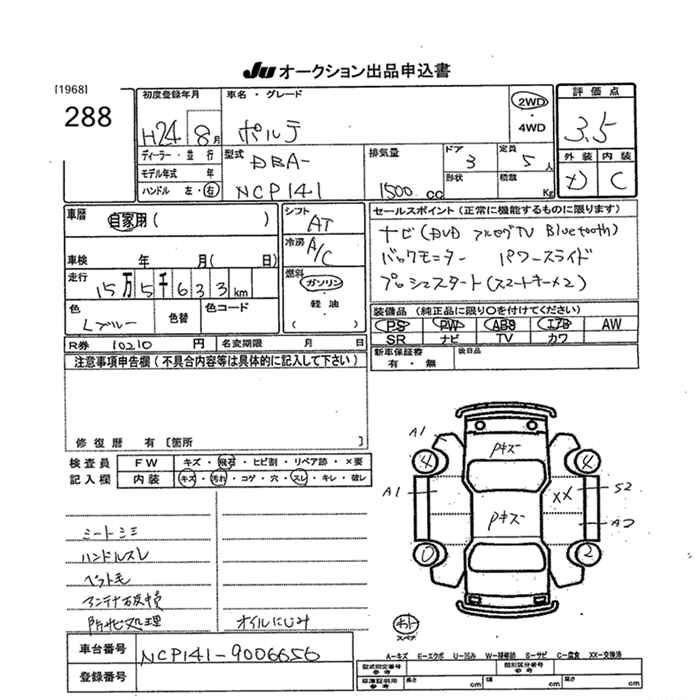 JU オークション出品申込書
[1968]
288
初度登録年月
H24 8月
車名・グレード
ポルテ
2WD
・
4WD
評価点
3.5
外装 内装
C
ディーラー・並行
モデル年式 年
ハンドル 左・右
型式
DBA-
NCP141
排気量
1500 cc
ドア
3
形状
定員
5人
積載
Kg
車暦
自家用 ( )
車検 年 月( 日)
走行
15万5千633km
色
Lブルー
色替
色コード
シフト
AT
冷房
A/C
燃料
ガソリン
・
軽油
( )
セールスポイント (正常に機能するものに限ります)
ナビ (DVD フルセグTV Bluetooth)
バックモニター パワースライド
プッシュスタート (スマートキー×2)
装備品 (純正品に限り○を付けてください)
PS PW ABS エアB AW
SR ナビ TV カワ
R券 10210 円 名変期限 月 日
新車保証書
有・無
後日品
注意事項申告欄 (不具合内容等は具体的に記入して下さい)
修復歴 有 [箇所 ]
検査員
記入欄
FW キズ・飛石・ヒビ割・リペア跡・×要
内装 キズ・汚れ・コゲ・穴・スレ・キレ・破レ
シートシミ
ハンドルスレ
ペット毛
アンテナ破損
防犯処理 オイルにじみ
A1
Pキズ
4 4
A1
XX
S2
Pキズ
A2
0 2
スペア
A-キズ E-エクボ U-凹み W-補修跡 S-サビ C-腐食 XX-交換済
車台番号 NCP141-9006656
登録番号
型式指定番号
参考
類別区分番号
参考
車庫証明用
参考
長さ cm 幅 cm 高さ cm